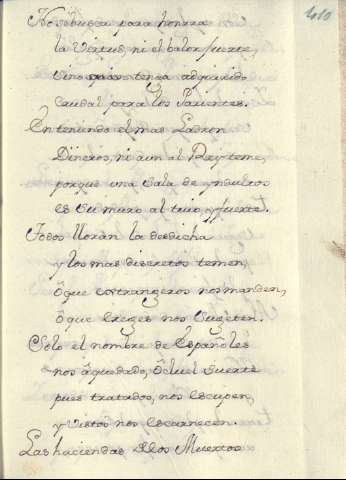 410
No se busca para honrra
la Virtud, ni el balor fuerte,
sino quien tenga adquirido
Caudal para los Parientes.
En teniendo el mas Ladron
Dineros, ni aun al Rey teme,
porque una Sala de yndultos
es Su muro al trio, y fuerte.
Todos lloran la desdicha
y los mas discretos temen,
ô que estrangeros nos manden,
ô que Ereges nos Sugeten.
Solo el nombre de Españoles
nos â quedado, ô cruel suerte
pues tratados, nos escupen,
y vistos nos escarnecen.
Las haciendas de los Muertos